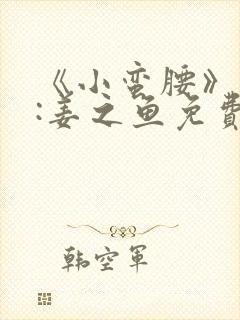 《小蛮腰》
:姜之鱼免費
韩空軍